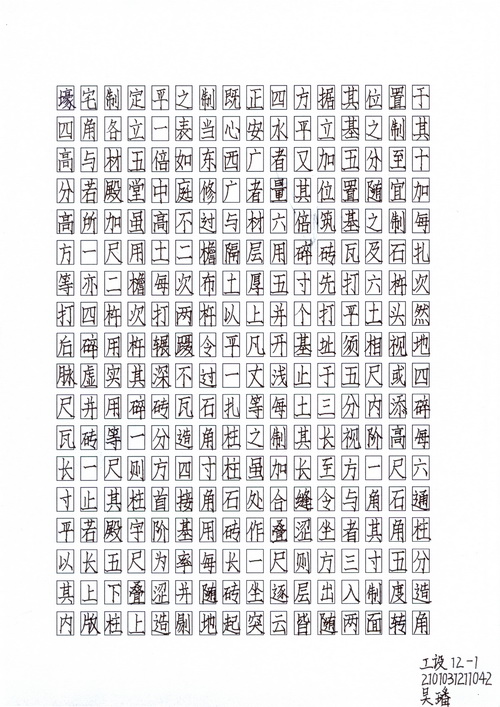 壕宅制定平之制既正四方据其位置于
四角各立一表当心安水平立基之制其
高与材五倍如东西广者又加五分至十
分若殿堂中庭修广者量其位置随宜加
高所加虽高不过与材六倍筑基之制每
方一尺用土二檐隔层用碎砖瓦及石扎
等亦二檐每次布土厚五寸先打六杵次
打四杵次打两杵以上并个打平土头然
后碎用杵辗蹑令平凡开基址须相视地
脉虚实其深不过一丈浅止于五尺或四
尺并用碎砖瓦石扎等每土三分内添碎
瓦砖等一分造角柱之制其长视阶高每
长一尺则方四寸柱虽加长至方一尺六
寸止其柱首接角石处合缝令与角石通
平若殿宇阶基用砖作叠涩坐者其角柱
以长五尺为率每长一尺则方三寸五分
其上下叠涩并随砖坐逐层出入制度造
内版柱上造剔地起突云皆随两面转角
工设12-1
2101031211042
吴璠